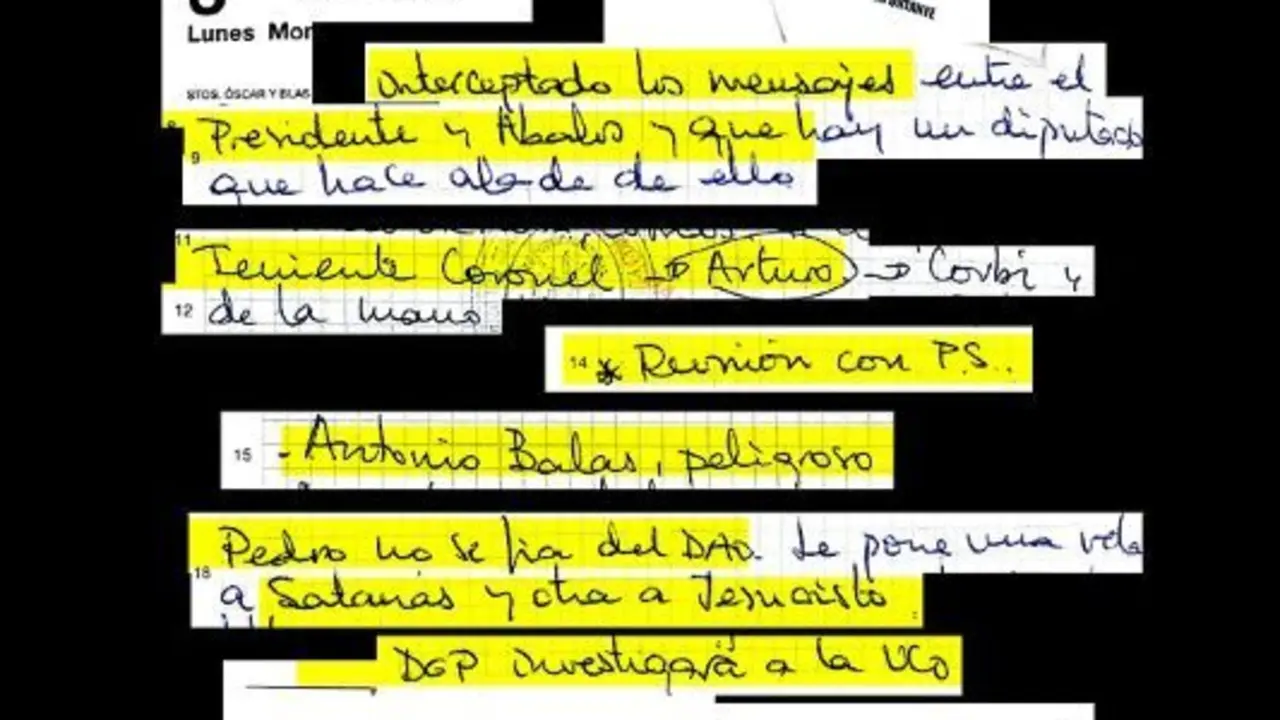 Lunes Mon
STOS. ÓSCAR Y BLAS
interceptado los mensajes entre el
9 Presidente y Ábalos y que hay un diputado
que hace alarde de ello
11 Teniente Coronel → Arturo → Corbi y
12 de la mano.
14 * Reunión con P.S..
15 - Antonio Balas, peligroso
Pedro no se fia del DAO. Le pone una vela
18 a Satanás y otra a Jesucristo.
DGP investigará a la UCO